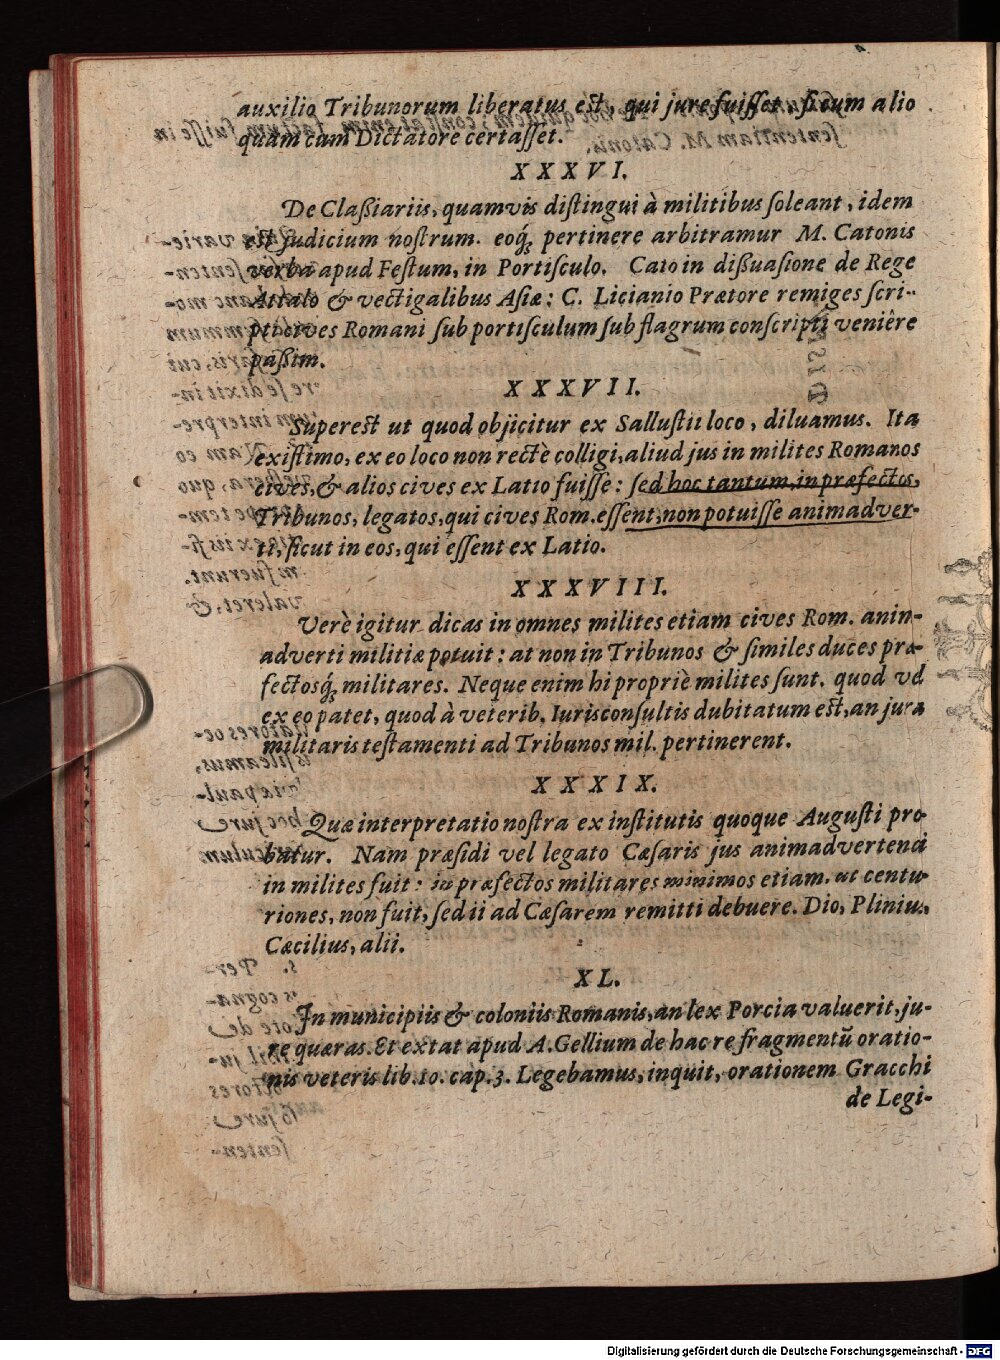 auxilio Tribunorum liberatus est, qui jure fuisset, si cum alio
quàm cum Dictatore certasset.
XXXVI.
De Claßiariis, quamvis distingui à militibus soleant, idem
est judicium nostrum. eoq́; pertinere arbitramur M. Catonis
verba apud Festum, in Portisculo. Cato in dißuasione de Rege
Attalo & vectigalibus Asiæ: C. Licianio Prætore remiges scri-
pti cives Romani sub portisculum sub flagrum conscripti veniêre
paßim.
XXXVII.
Superest ut quod objicitur ex Sallustii loco, diluamus. Ita
existimo, ex eo loco non rectè colligi, aliud jus in milites Romanos
cives, & alios cives ex Latio fuisse: sed hoc tantum, in præfectos,
Tribunos, legatos, qui cives Rom. essent, non potuisse animadver-
ti, sicut in eos, qui essent ex Latio.
XXXVIII.
Verè igitur dicas in omnes milites etiam cives Rom. anin-
adverti militiæ potuit: at non in Tribunos & similes duces præ-
fectosq́; militares. Neque enim hi propriè milites sunt. quod vel
ex eo patet, quod à veterib. Iurisconsultis dubitatum est, an jura
militaris testamenti ad Tribunos mil. pertinerent.
XXXIX.
Quæ interpretatio nostra ex institutis quoque Augusti pro-
batur. Nam præsidi vel legato Cæsaris jus animadvertendi
in milites fuit: in præfectos militares minimos etiam. ut centu-
riones, non fuit, sed ii ad Cæsarem remitti debuere. Dio, Plinius,
Cæcilius, alii.
XL.
In municipiis & coloniis Romanis, an lex Porcia valuerit, ju-
re quæras. Et extat apud A. Gellium de hac re fragmentū oratio-
nis veteris lib. 10. cap. 3. Legebamus, inquit, orationem Gracchi
de Legi-
Digitalisierung gefördert durch die Deutsche Forschungsgemeinschaft - DFG